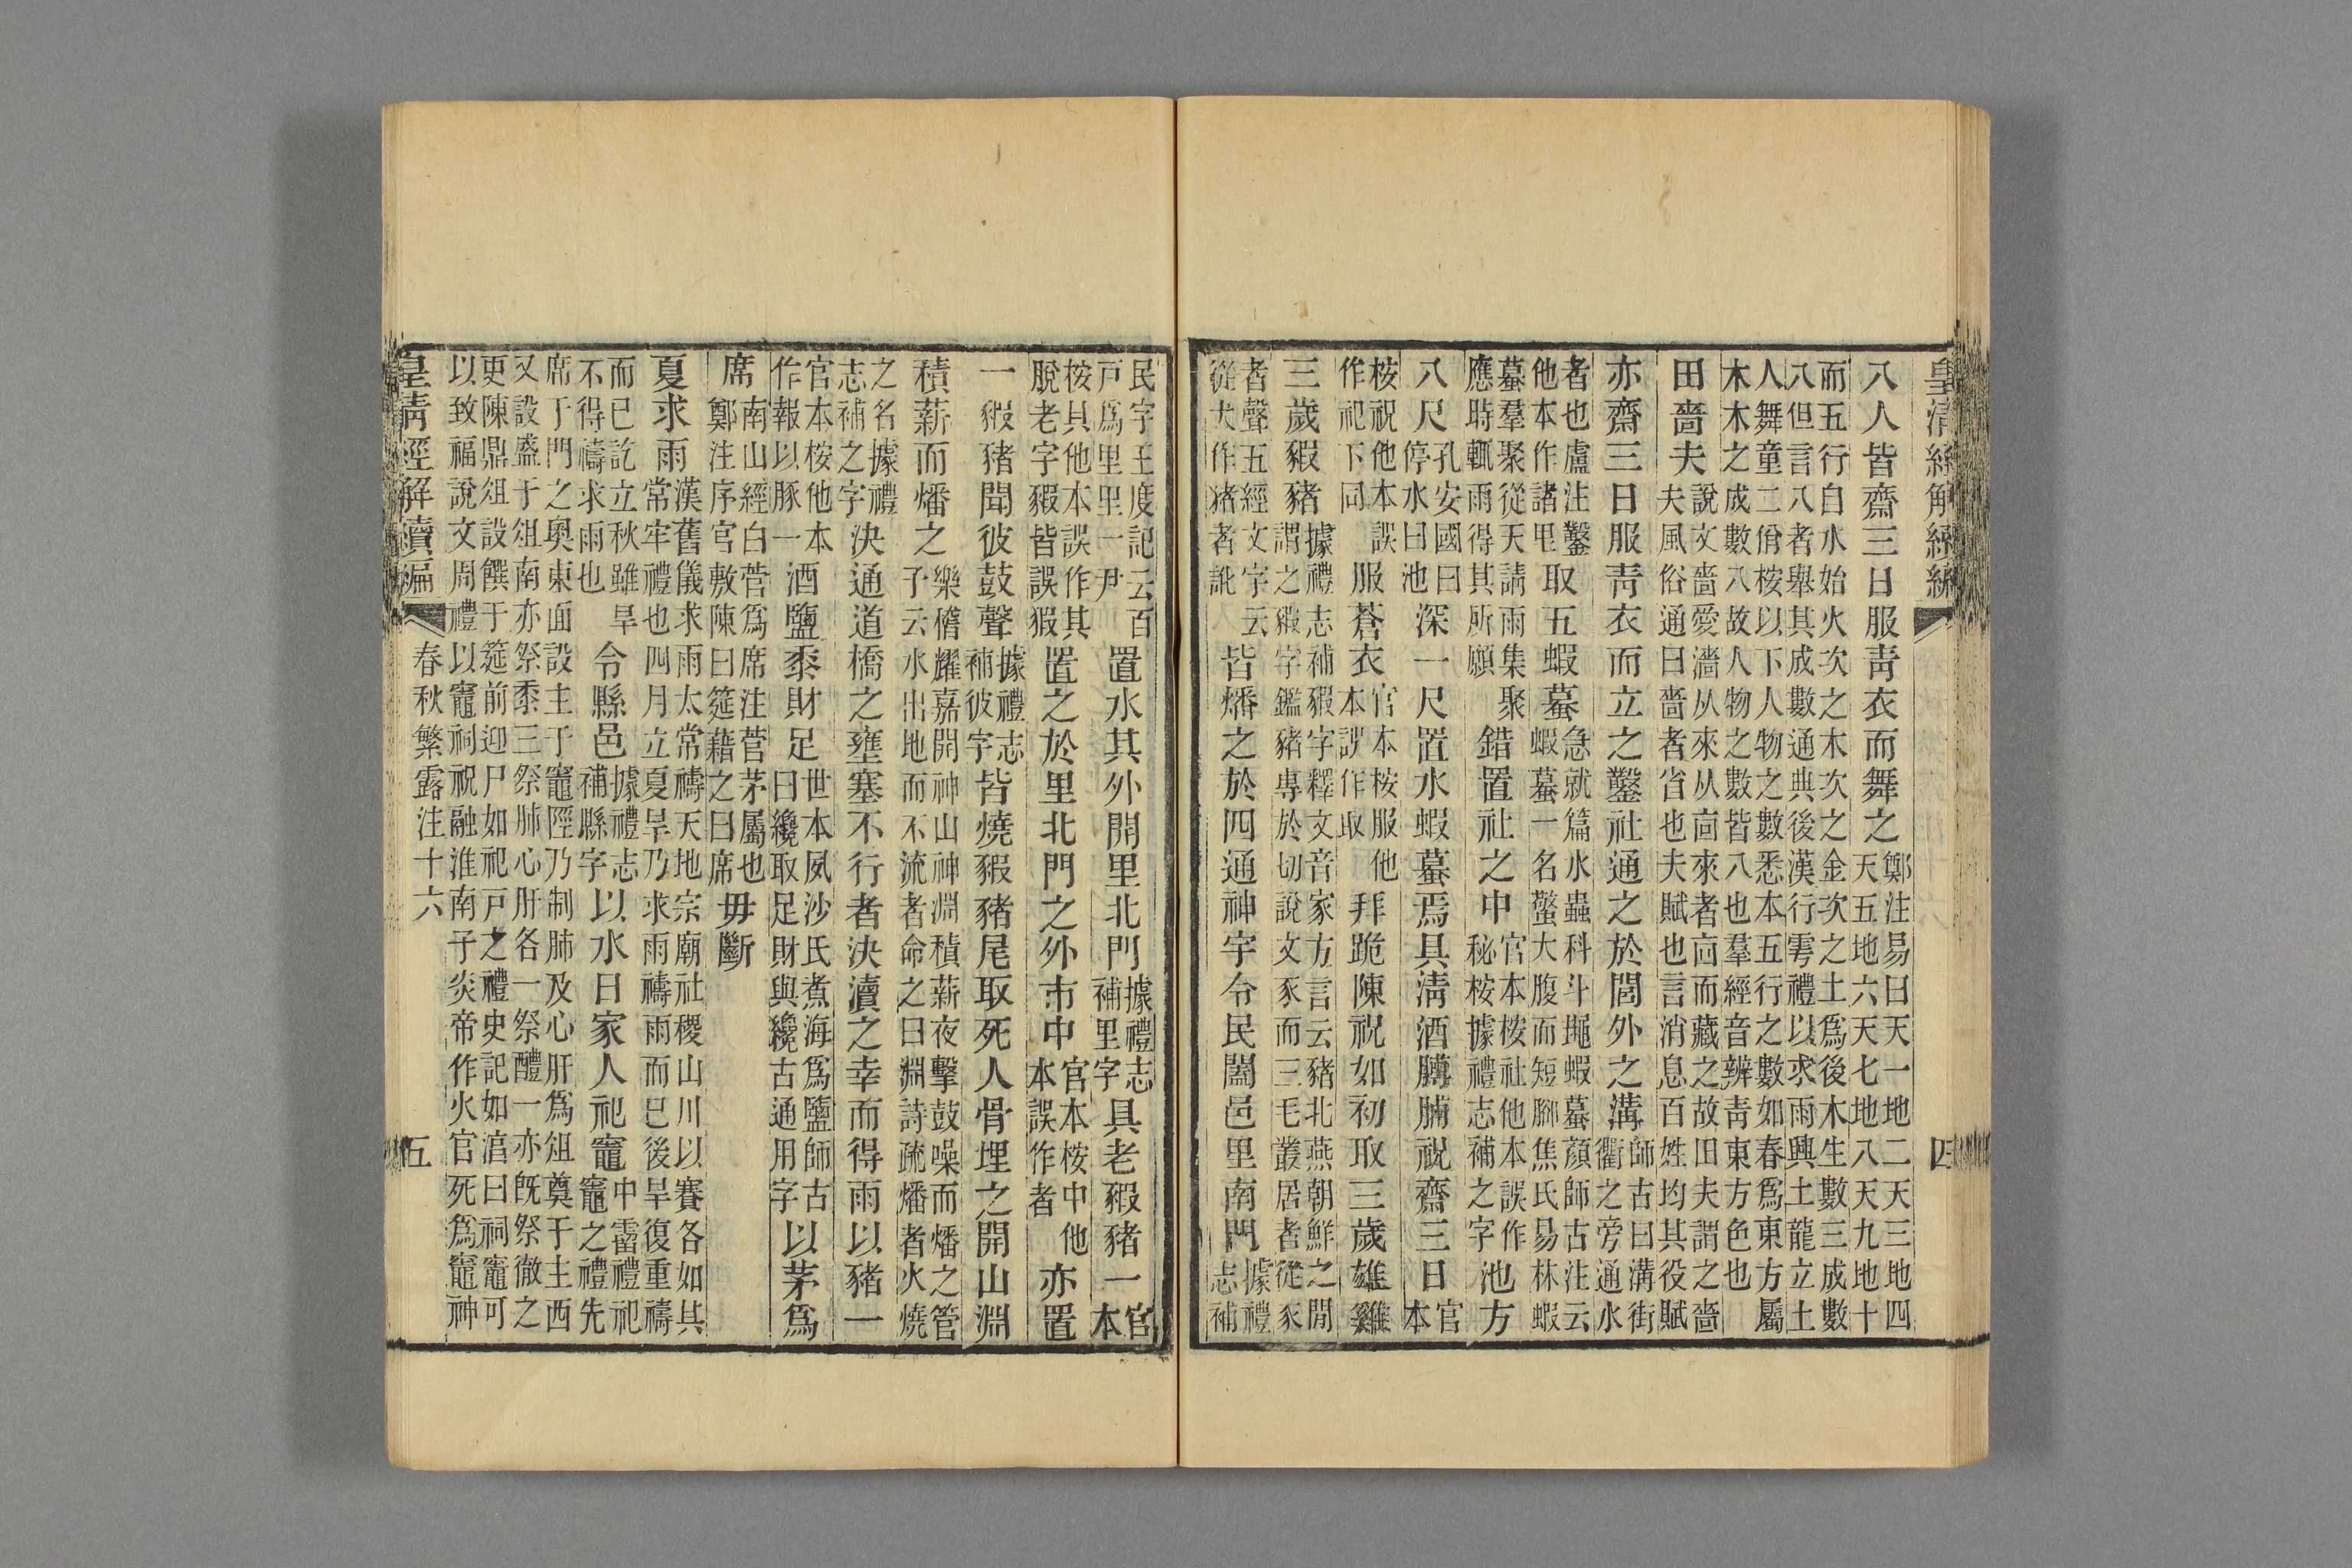 皇清經解續編
四
八人皆齋三日服靑衣而舞之鄭注易曰天一地二天三地四天五地六天七地八天九地十
而五行自水始火次之木次之金次之土爲後木生數三成數八但言八者舉其成數通典後漢行雩禮以求雨興土龍立土
人舞童二佾桉以下人物之數悉本五行之數如春爲東方屬木木之成數八故人物之數皆八也羣經音辨靑東方色也
田嗇夫說文嗇愛濇从來从㐭來者㐭而藏之故田夫謂之嗇夫風俗通曰嗇者省也夫賦也言消息百姓均其役賦
亦齋三日服靑衣而立之鑿社通之於閭外之溝師古曰溝街衢之旁通水
者也盧注鑿他本作諸里取五蝦蟇急就篇水蟲科斗䵷蝦蟇顏師古注云蝦蟇一名螫大腹而短腳焦氏易林蝦
蟇羣聚從天請雨集聚應時輒雨得其所願錯置社之中官本桉社他本誤作秘桉據禮志補之字池方
八尺孔安國曰停水曰池深一尺置水蝦蟇焉具淸酒膊脯祝齋三日官本
桉祝他本誤作祀下同服蒼衣官本桉服他本誤作取拜跪陳祝如初取三歲雄雞
三歲豭豬據禮志補豭字釋文音家方言云豬北燕朝鮮之閒謂之豭字鑑豬專於切說文豕而三毛叢居者從豕
者聲五經文字云從犬作猪者訛皆燔之於四通神宇令民闔邑里南門據禮志補
民字王度記云百戸爲里里一尹置水其外開里北門據禮志補里字具老豭豬一官本
桉具他本誤作其脫老字豭皆誤猳置之於里北門之外市中官本桉中他本誤作者亦置
一豭豬聞彼鼓聲據禮志補彼字皆燒豭豬尾取死人骨埋之開山淵
積薪而燔之樂稽耀嘉開神山神淵積薪夜擊鼓噪而燔之管子云水出地而不流者命之曰淵詩疏燔者火燒
之名據禮志補之字決通道橋之壅塞不行者決瀆之幸而得雨以豬一
官本桉他本作報以豚一酒鹽黍財足世本夙沙氏煮海爲鹽師古曰纔取足財與纔古通用字以茅爲
席南山經白菅爲席注菅茅屬也鄭注序官敷陳曰筵藉之曰席毋斷
夏求雨漢舊儀求雨太常禱天地宗廟社稷山川以賽各如其常牢禮也四月立夏旱乃求雨禱雨而巳後旱復重禱
而巳訖立秋雖旱不得禱求雨也令縣邑據禮志補縣字以水日家人祀竈中霤禮祀竈之禮先
席于門之奧東面設主于竈陘乃制肺及心肝爲俎奠于主西又設盛于俎南亦祭黍三祭肺心肝各一祭醴一亦旣祭徹之
更陳鼎俎設饌于筵前迎尸如祀戸之禮史記如湻曰祠竈可以致福說文周禮以竈祠祝融淮南子炎帝作火官死爲竈神
皇清經解續編
春秋繁露注十六
五